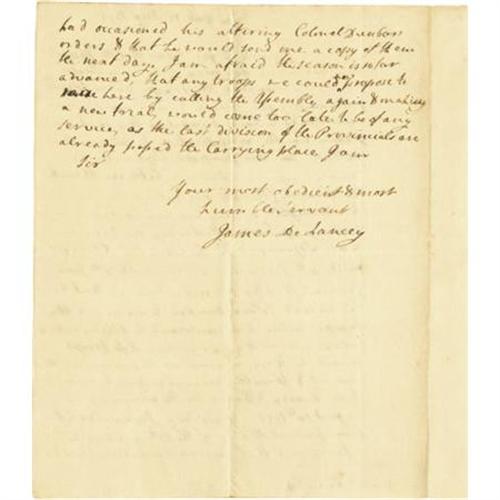 had occasioned his altering Colonel Dunbars
orders & that he would send me a copy of them
the next day. I am afraid the season is so far
advanced, that any troops we could propose to
raise here by calling the Assembly again & making
a new trial, would come too late to be of any
service, as the last division of the Provincials are
already passed the Carrying place. I am
Sir
Your most obedient & most
humble Servant
James De Lancey